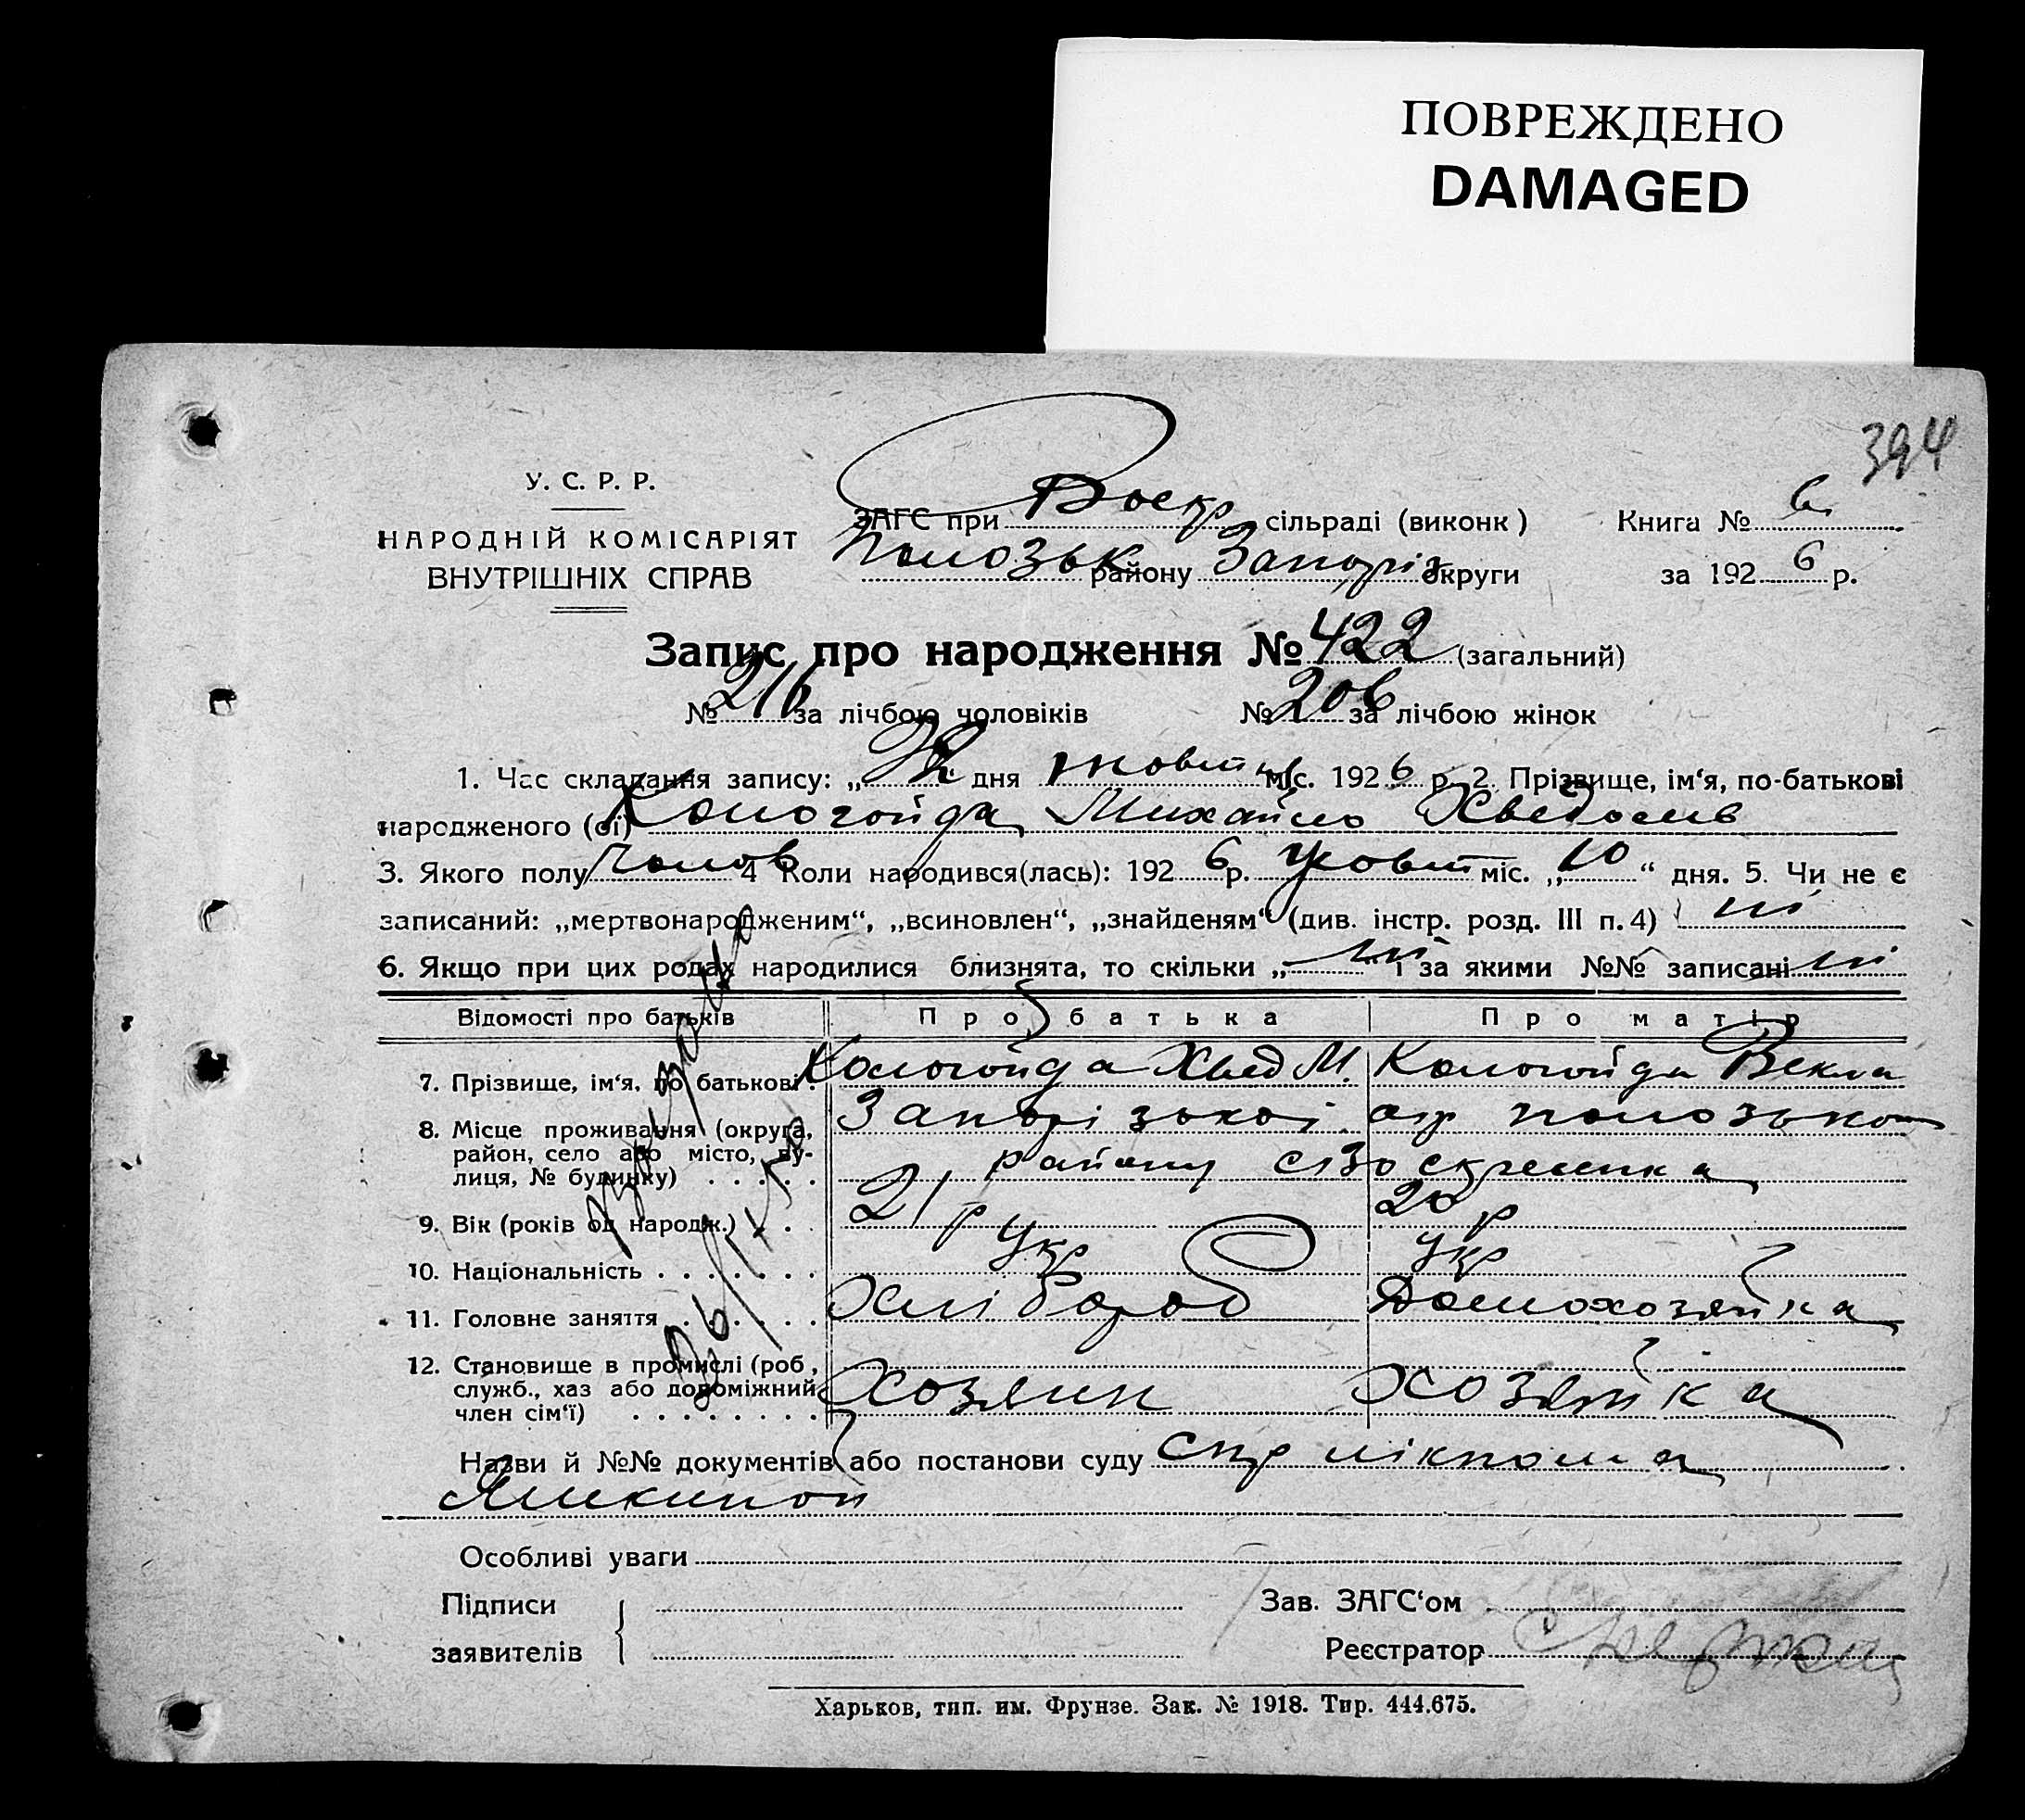 ПОВРЕЖДЕНО
DAMAGED
394
У. С. Р. Р.
НАРОДНІЙ КОМІСАРІЯТ
ВНУТРІШНІХ СПРАВ
ЗАГС при Воскр сільраді (виконк) Книга № 6
Полозьк району Запоріз округи за 1926 р.
Запис про народження № 422 (загальний)
№ 216 за лічбою чоловіків № 206 за лічбою жінок
1. Час складання запису: „ дня жовтня міс. 1926 р. 2. Прізвище, ім‘я, по-батькові
народженого (ої) Кологойда Михайло Хведосів
3. Якого полу чолов 4 Коли народився(лась): 1926 р. жовт міс. „10“ дня. 5. Чи не є
записаний: „мертвонародженим“, „всиновлен“, „знайденям“ (див. інстр. розд. III п. 4) ні
6. Якщо при цих родах народилися близнята, то скільки „ні“ і за якими №№ записані ні
Відомості про батьків Про батька Про матір
7. Прізвище, ім‘я, по батькові Кологойда Хвед М. Кологойда Векла
8. Місце проживання (округа, Запорізької окр Полозького
район, село або місто, ву- району с Воскресенка
лиця, № будинку)
9. Вік (років од народж.) 21 р 20 р
10. Національність Укр Укр
11. Головне заняття Хлібороб Домохозяйка
12. Становище в промислі (роб,
служб., хаз або допоміжний Хозяин Хозяйка
член сім‘ї)
Назви й №№ документів або постанови суду спр лікпома
Особливі уваги
Підписи Зав. ЗАГС‘ом
заявителів Реєстратор
Харьков, тип. им. Фрунзе. Зак. № 1918. Тир. 444.675.